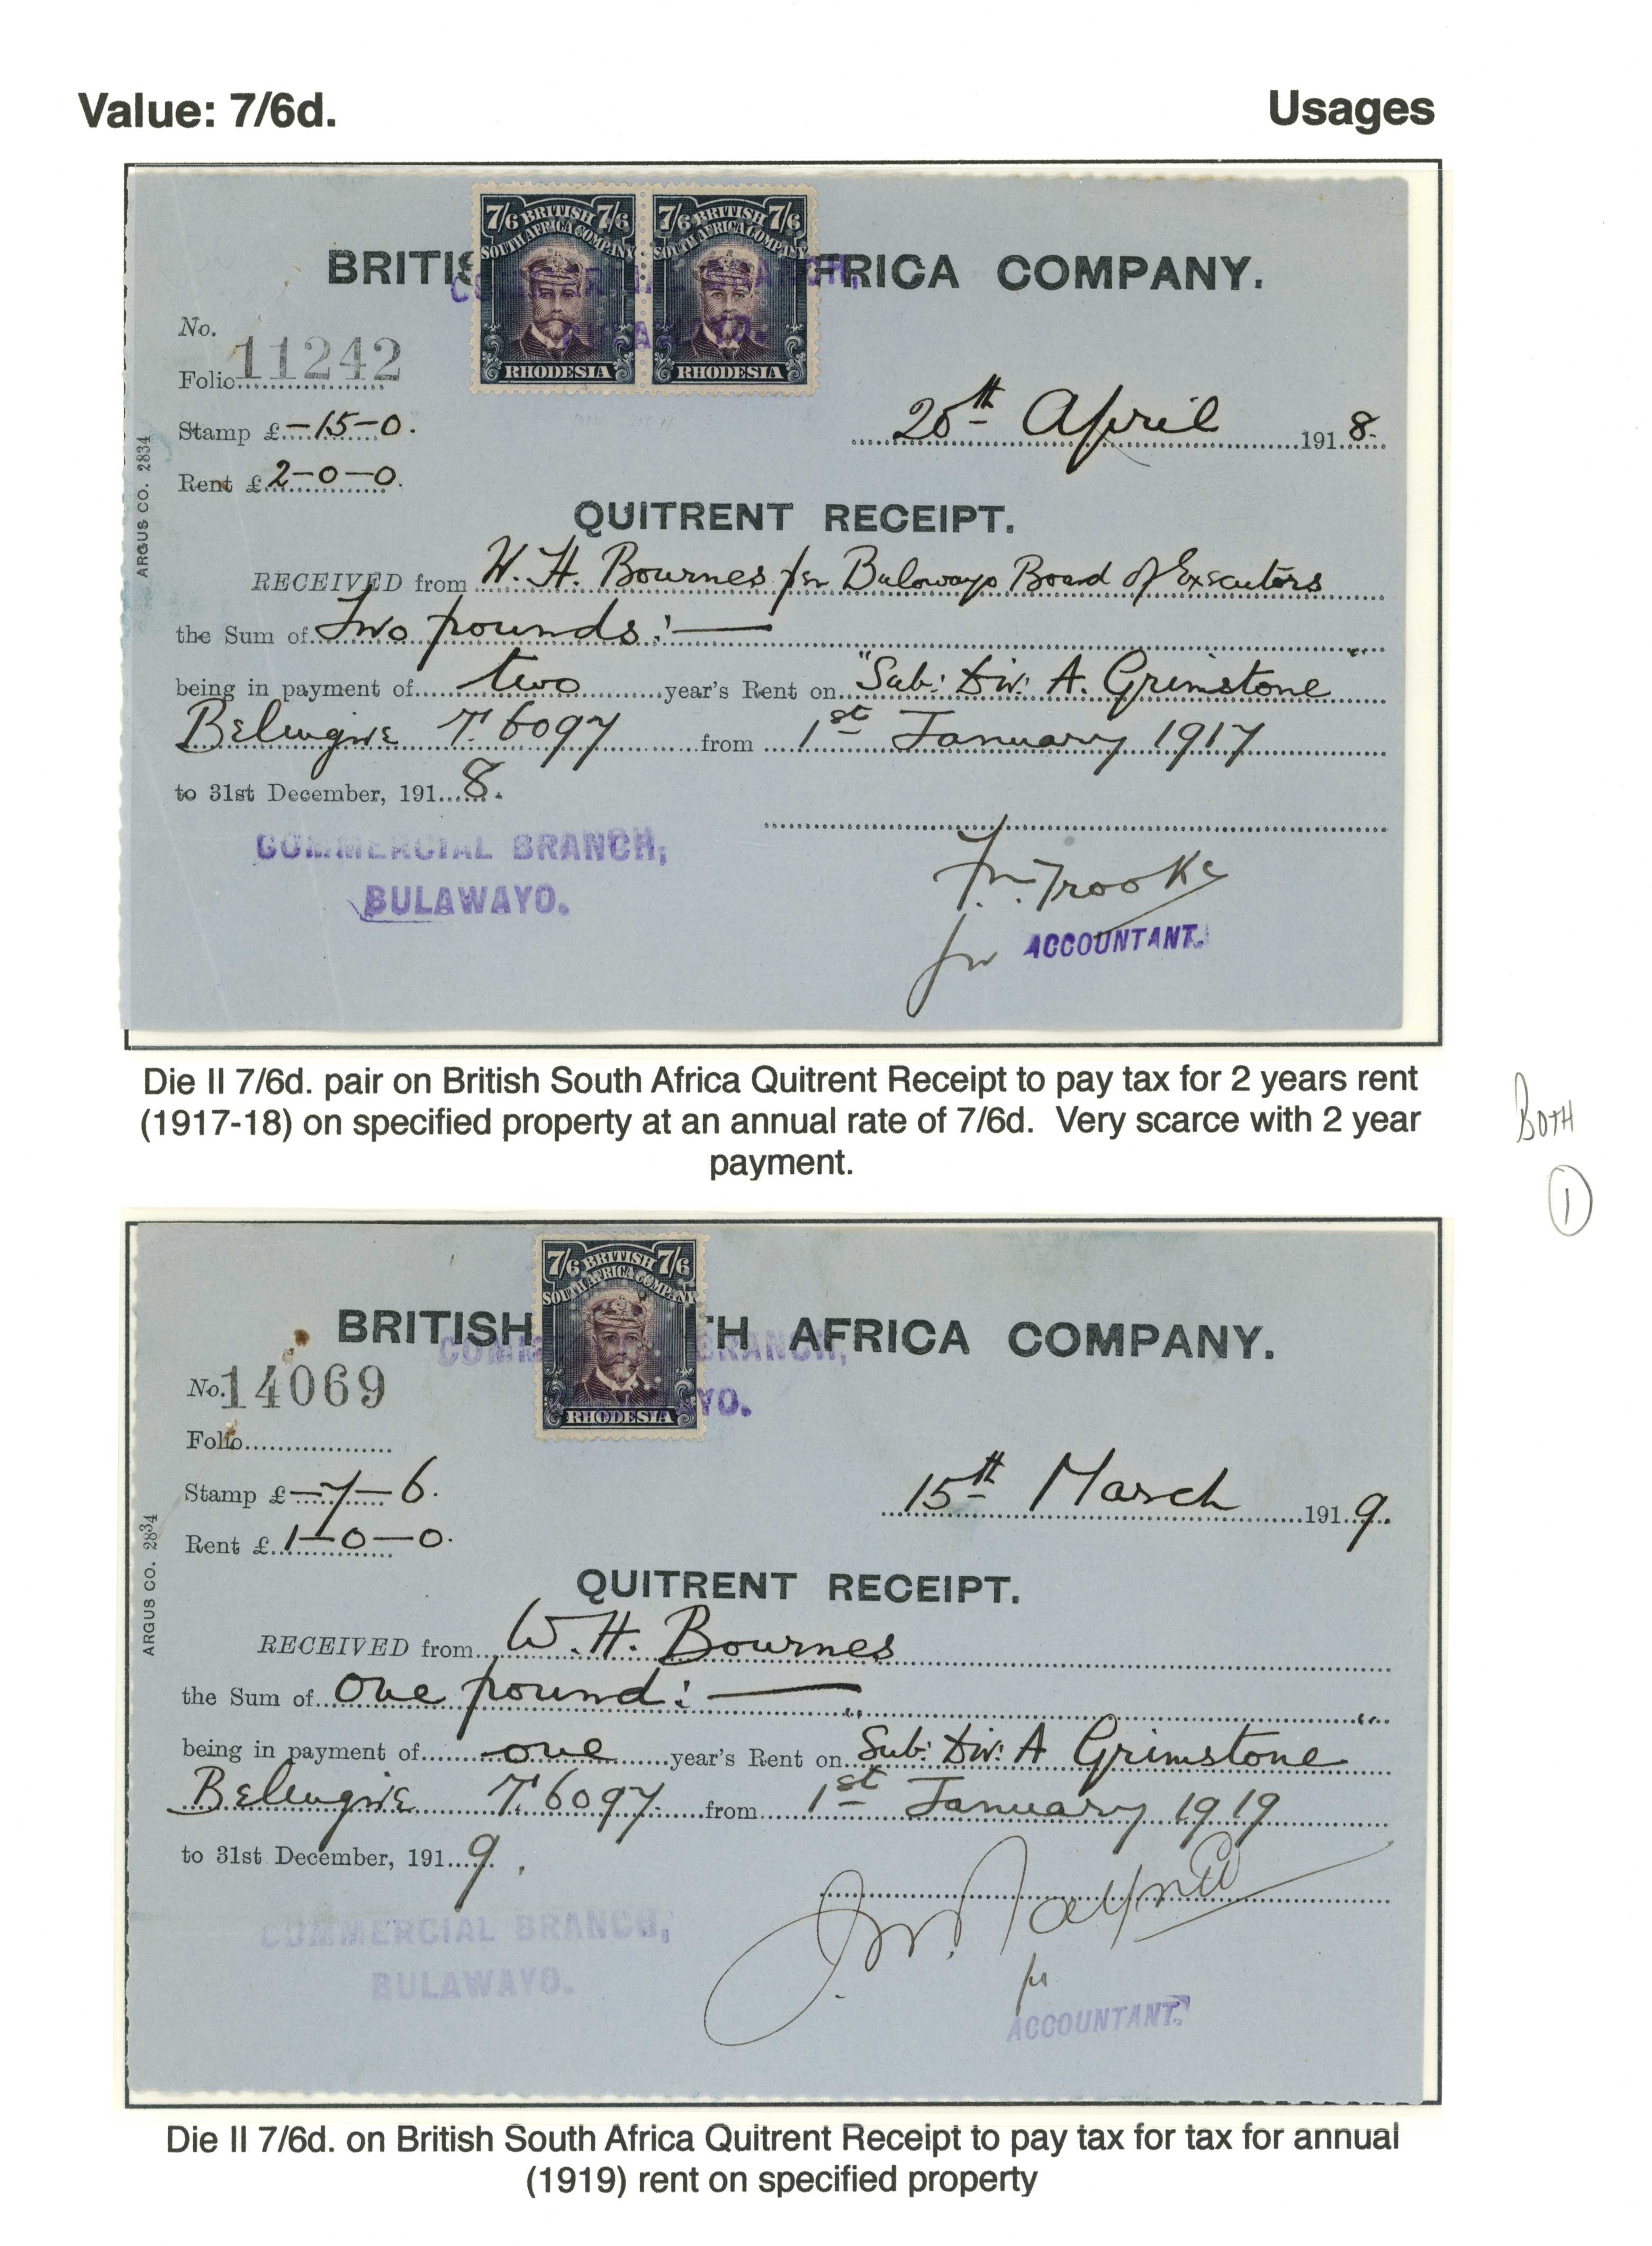 Value: 7/6d. Usages
7/6 BRITISH 7/6 7/6 BRITISH 7/6
SOUTH AFRICA COMPANY SOUTH AFRICA COMPANY
BRITIS FRICA COMPANY.
COMMERCIAL BRANCH,
BULAWAYO.
RHODESIA RHODESIA
No. 11242
Folio
Stamp £ -15-0.
20th April 1918.
Rent £ 2-0-0.
ARGUS CO. 2834
QUITRENT RECEIPT.
RECEIVED from W. H. Bournes per Bulowayo Board of Executors
the Sum of Two pounds:—
being in payment of two year's Rent on "Sub: Div: A. Grimstone"
Belingwe T. 6097 from 1st January 1917
to 31st December, 1918.
COMMERCIAL BRANCH,
BULAWAYO.
for ACCOUNTANT.
Die II 7/6d. pair on British South Africa Quitrent Receipt to pay tax for 2 years rent
(1917-18) on specified property at an annual rate of 7/6d. Very scarce with 2 year
payment.
BOTH
1
7/6 BRITISH 7/6
SOUTH AFRICA COMPANY
BRITISH TH AFRICA COMPANY.
COMM BRANCH,
YO.
RHODESIA
No. 14069
Folio
Stamp £ -7-6.
15th March 1919.
Rent £ 1-0-0.
ARGUS CO. 2834
QUITRENT RECEIPT.
RECEIVED from W. H. Bournes
the Sum of One pound:—
being in payment of one year's Rent on "Sub: Div: A Grimstone"
Belingwe T. 6097 from 1st January 1919
to 31st December, 1919.
COMMERCIAL BRANCH,
BULAWAYO.
ACCOUNTANT.
Die II 7/6d. on British South Africa Quitrent Receipt to pay tax for tax for annual
(1919) rent on specified property